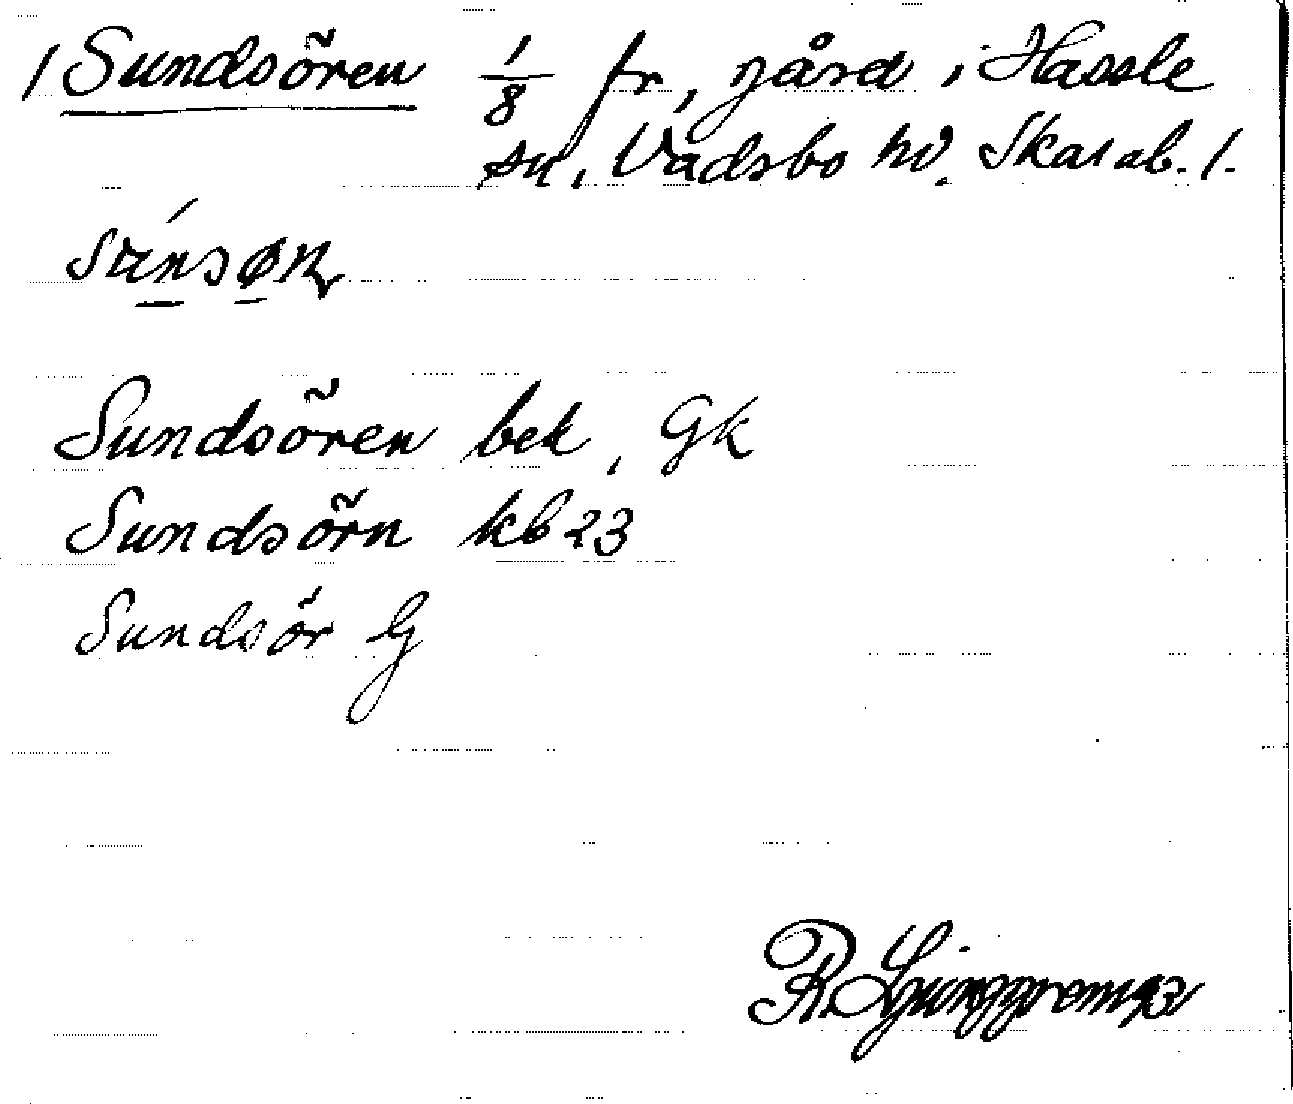 1 Sundsören 1/8 fr, gård i Hassle
sn, Vadsbo hd. Skarab. l.
Sundsören bek, Gk
Sundsörn kb 23
Sundsör G
R. Ljunggren